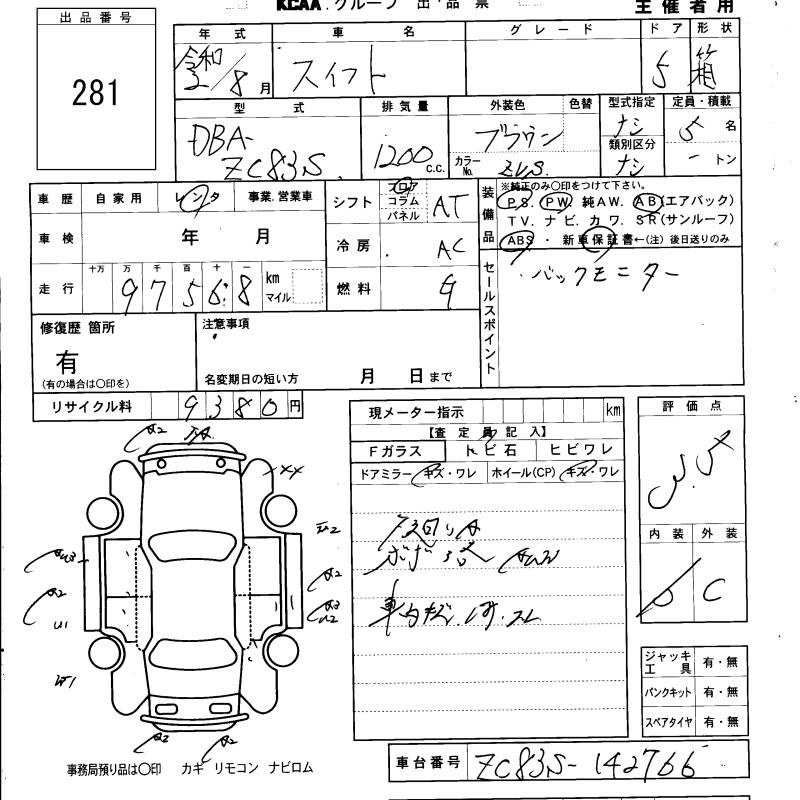 KCAA.グループ 出・品 票 主催者用
出品番号
281
年式 車名 グレード ドア 形状
令和 2/8月 スイフト 5 箱
型式 排気量 外装色 色替 型式指定 定員・積載
DBA-ZC83S 1200 c.c. ブラウン ナシ 5名
カラーNo. ZVS 類別区分 ナシ - トン
車歴 自家用 レンタ 事業.営業車
車検 年 月
走行 十万 万 千 百 十 一 km マイル
9 7 5 6 8
シフト フロア コラム パネル AT
冷房 AC
燃料
装備品 ※純正のみ○印をつけて下さい。
PS. PW. 純AW. AB(エアバック)
TV. ナビ. カワ. SR(サンルーフ)
ABS ・ 新車保証書←(注) 後日送りのみ
セールスポイント
バックモニター
修復歴 箇所
有
(有の場合は○印を)
注意事項
名変期日の短い方 月 日まで
リサイクル料 9380円
現メーター指示 km
【査定員記入】
Fガラス トビ石 ヒビワレ
ドアミラー キズ・ワレ ホイール(CP) キズ・ワレ
評価点
3.5
内装 外装
D C
A2
XX
A2
A2
U1
A2
A3
U2
W1
A2
A2
ジャッキ工具 有・無
パンクキット 有・無
スペアタイヤ 有・無
事務局預り品は○印 カギ リモコン ナビロム
車台番号 ZC83S-142766